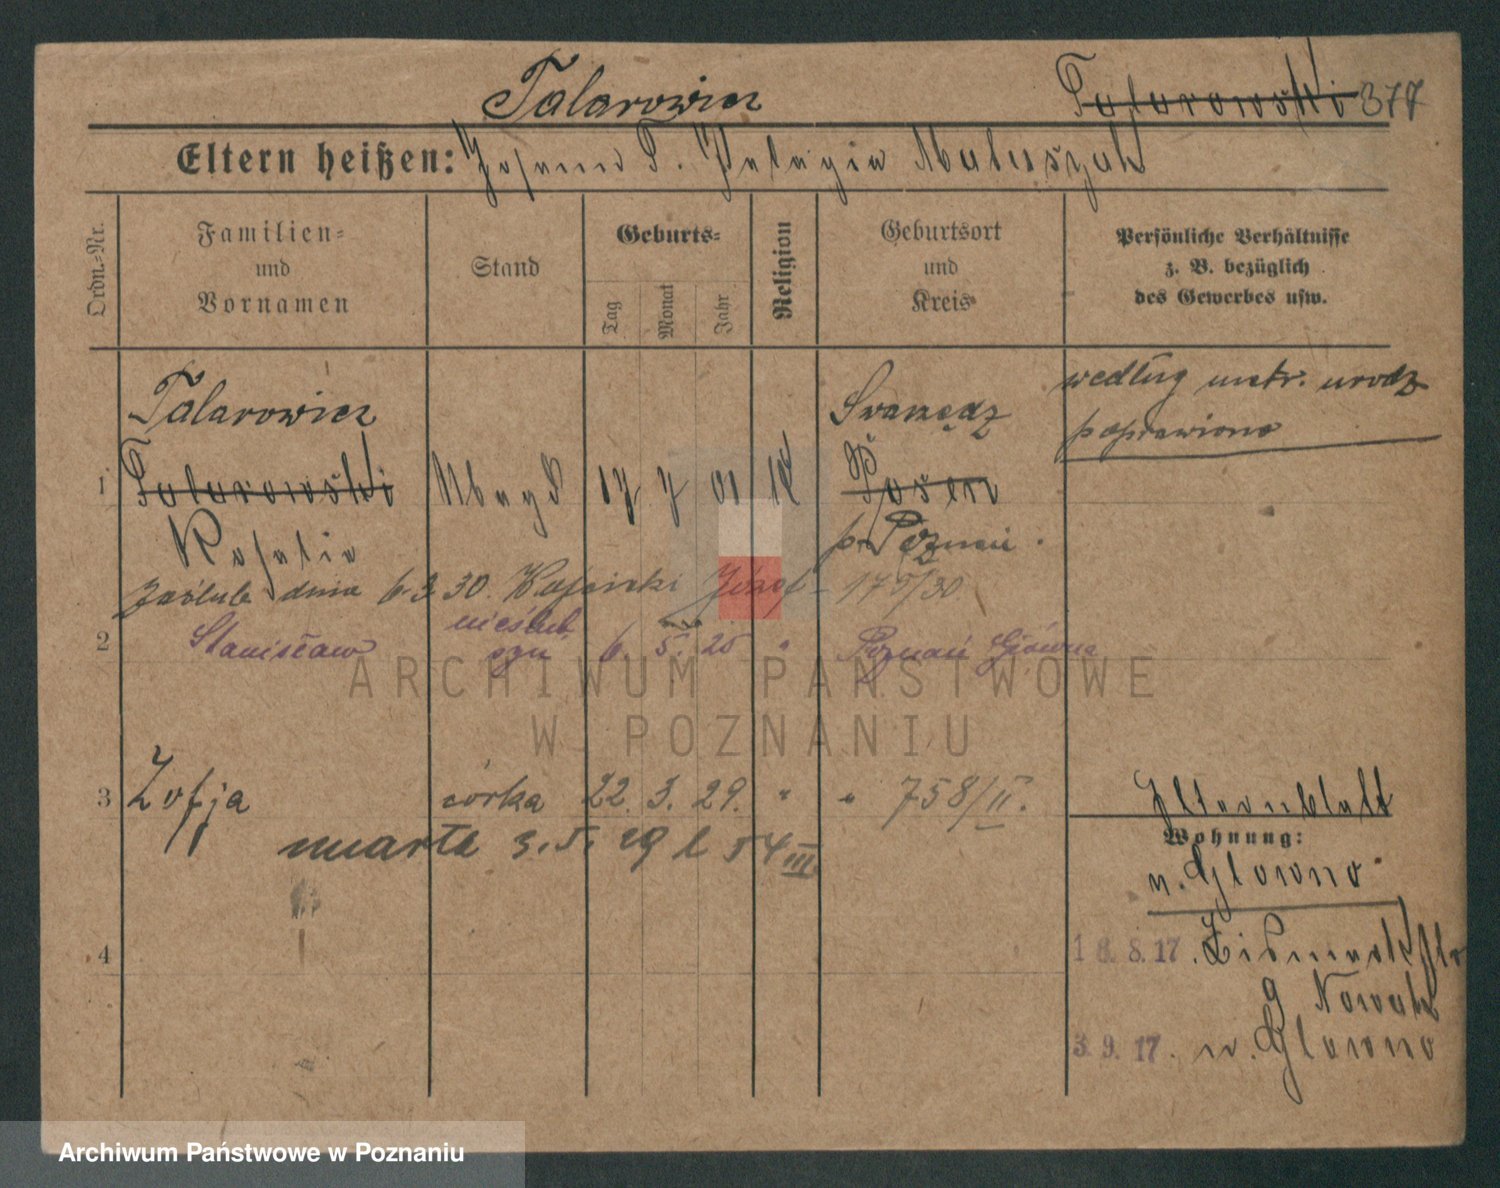 Talarowicz
Talarowski 377
Eltern heißen: Johann T. Pelagia Matuszak
Ordn.-Nr.
Familien-
und
Vornamen
Stand
Geburts-
Tag
Monat
Jahr
Religion
Geburtsort
und
Kreis
Persönliche Verhältnisse
z. B. bezüglich
des Gewerbes usw.
Talarowicz
Swarzędz
według metr. urodz
poprawiono
1 Talarowski Magd 17 7 01 Posen
Rosalie
p. Poznań.
zaślub. dnia 6.3.30. Józef
2 Stanisław nieślub.
syn 6. 5. 25 " Poznań Główna
3 Zofja córka 22. 3. 29. " " 758/II.
umarła 3. 5. 29 l 54 III.
Elternblatt
Wohnung:
n. Glowno
4
18.8.17. Bismarckstr
9 Nowak
3.9.17. n. Glowno
ARCHIWUM PAŃSTWOWE
W POZNANIU
Archiwum Państwowe w Poznaniu